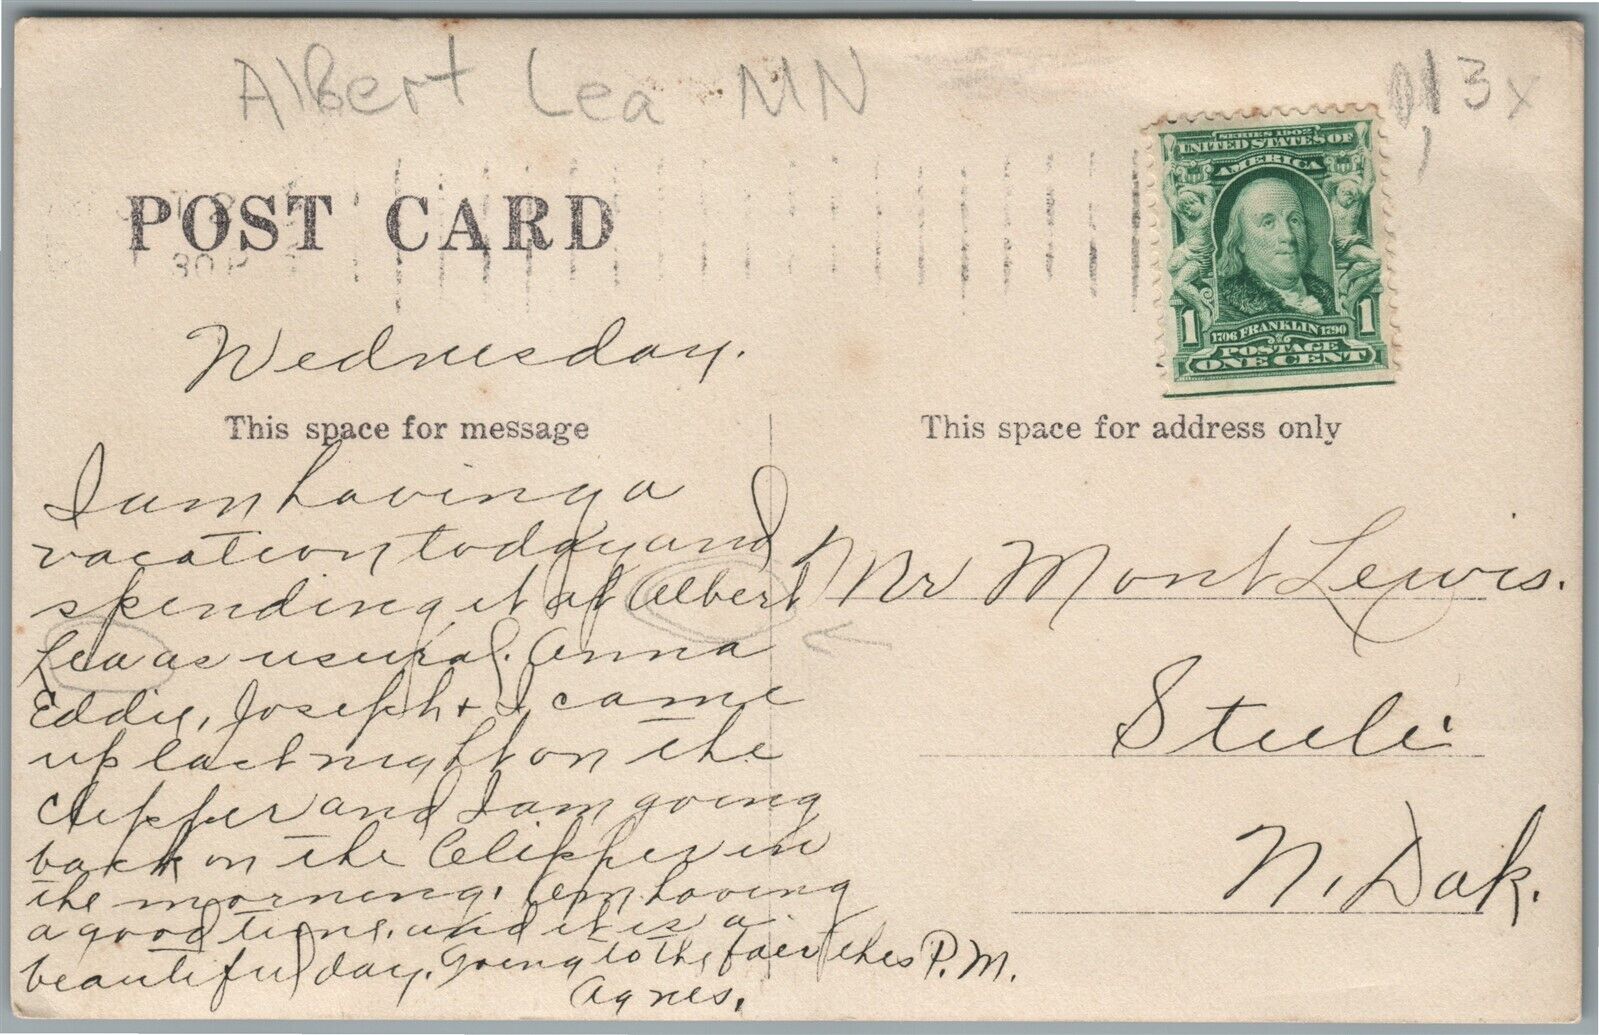 Albert Lea MN
13x
POST CARD
SERIES 1902
UNITED STATES OF
AMERICA
1 1
1706 FRANKLIN 1790
POSTAGE
ONE CENT
Wednesday.
This space for message
I am having a
vacation today and
spending it at Albert
Lea as usual. Anna
Eddie, Joseph + I came
up last night on the
clipper and I am going
back on the Clipper in
the morning. Am having
a good time, and it is a
beautiful day. Going to the fair this P.M.
Agnes.
This space for address only
Mr Mont Lewis.
Steele
N. Dak.